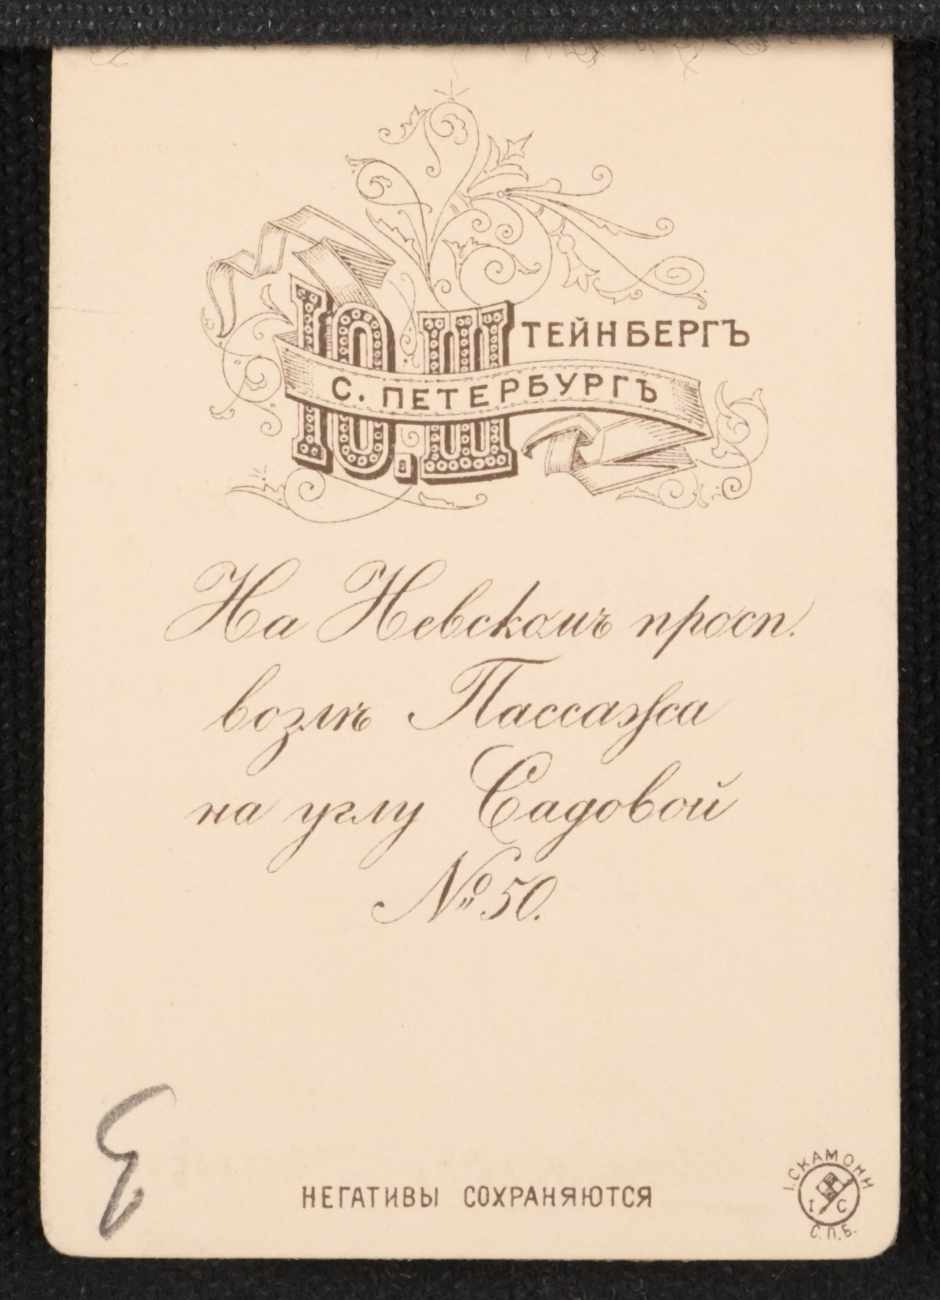 Ю. ШТЕЙНБЕРГЪ
С. ПЕТЕРБУРГЪ
На Невскомъ просп.
возлѣ Пассажа
на углу Садовой
№ 50.
НЕГАТИВЫ СОХРАНЯЮТСЯ
І. СКАМОНИ
I C
С.П.Б.